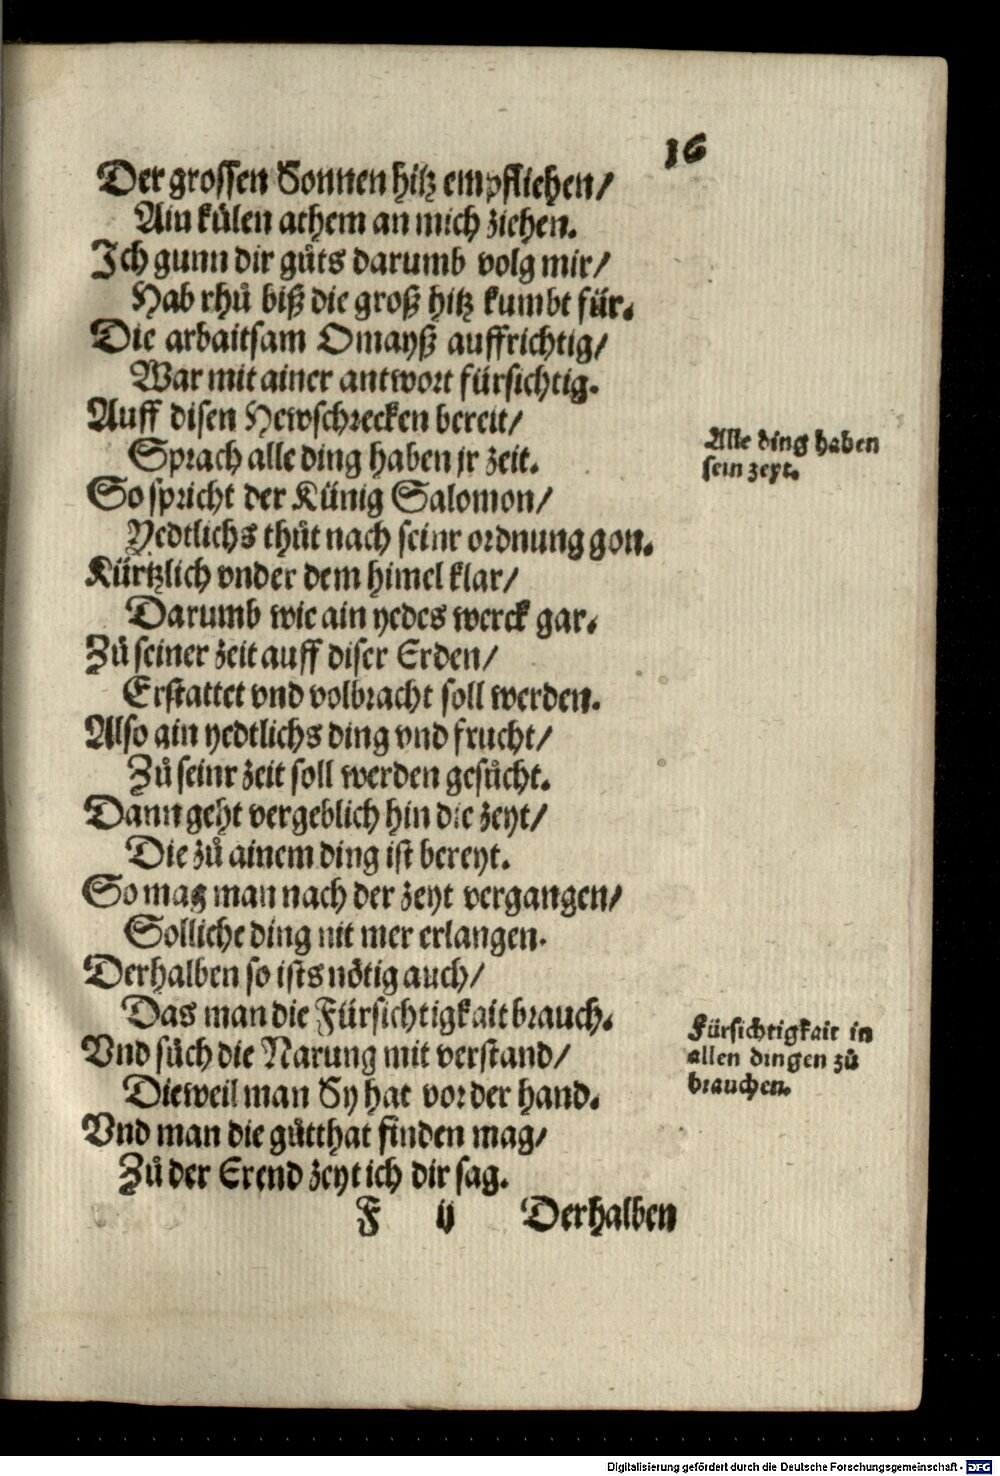 16
Der grossen Sonnen hitz empfliehen/
Ain külen athem an mich ziehen.
Ich gunn dir gůts darumb volg mir/
Hab rhů biß die groß hitz kumbt für.
Die arbaitsam Omayß auffrichtig/
War mit ainer antwort fürsichtig.
Auff disen Hewschrecken bereit/
Sprach alle ding haben jr zeit.
Alle ding haben
sein zeyt.
So spricht der Künig Salomon/
Yedtlichs thůt nach seinr ordnung gon.
Kürtzlich vnder dem himel klar/
Darumb wie ain yedes werck gar.
Zů seiner zeit auff diser Erden/
Erstattet vnd volbracht soll werden.
Also ain yedtlichs ding vnd frucht/
Zů seinr zeit soll werden gesůcht.
Dann geht vergeblich hin die zeyt/
Die zů ainem ding ist bereyt.
So mag man nach der zeyt vergangen/
Solliche ding nit mer erlangen.
Derhalben so ists nötig auch/
Das man die Fürsichtigkait brauch.
Fürsichtigkait in
allen dingen zů
brauchen.
Vnd sůch die Narung mit verstand/
Dieweil man Sy hat vor der hand.
Vnd man die gůtthat finden mag/
Zů der Erend zeyt ich dir sag.
F ij Derhalben
Digitalisierung gefördert durch die Deutsche Forschungsgemeinschaft - DFG